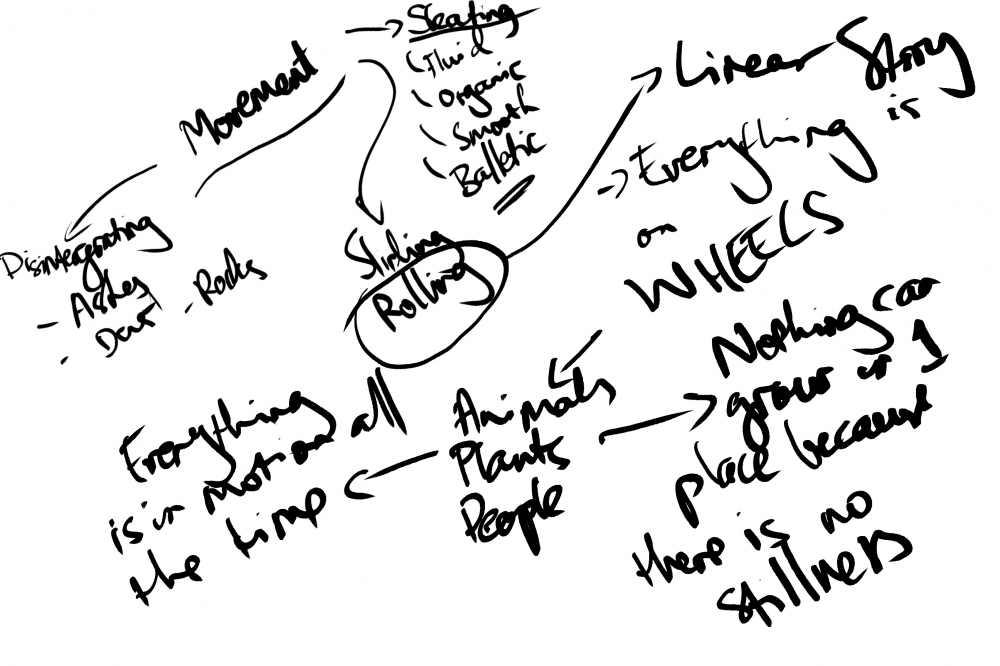 Movement
Skating
Fluid
Organic
Smooth
Balletic
Disintergrating
- Ashes
- Rocks
Sliding
Rolling
Linear Story
Everything is
on
WHEELS
Animals
Plants
People
Everything
is in motion all
the time
Nothing can
grow in 1
place because
there is no
stillness